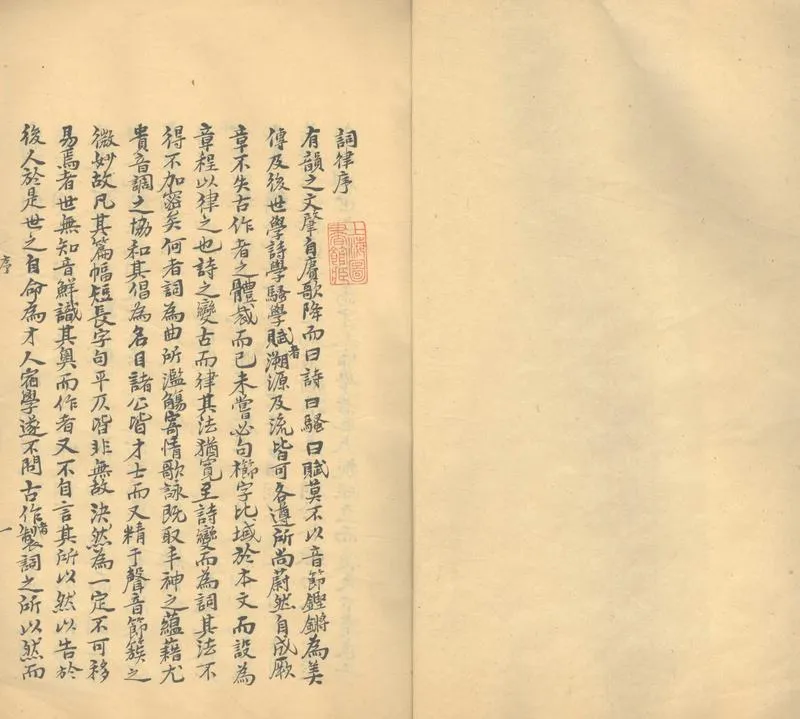 詞律序
有韻之文肇自賡歌降而曰詩曰騷曰賦莫不以音節鏗鏘為美
傳及後世學詩學騷學賦者溯源及流皆可各遵所尚蔚然自成厥
章不失古作者之體裁而已未嘗必句櫛字比域於本文而設為
章程以律之也詩之變古而律其法猶寬至詩變而為詞其法不
得不加密矣何者詞為曲所濫觴寄情歌詠既取丰神之蘊藉尤
貴音調之協和其倡為名目諸公皆才士而又精于聲音節簇之
微妙故凡其篇幅短長字句平仄皆非無故決然為一定不可移
易焉者世無知音鮮識其奧而作者又不自言其所以然以告於
後人於是世之自命為才人宿學遂不問古作者製詞之所以然而
序
一
上海圖
書館藏